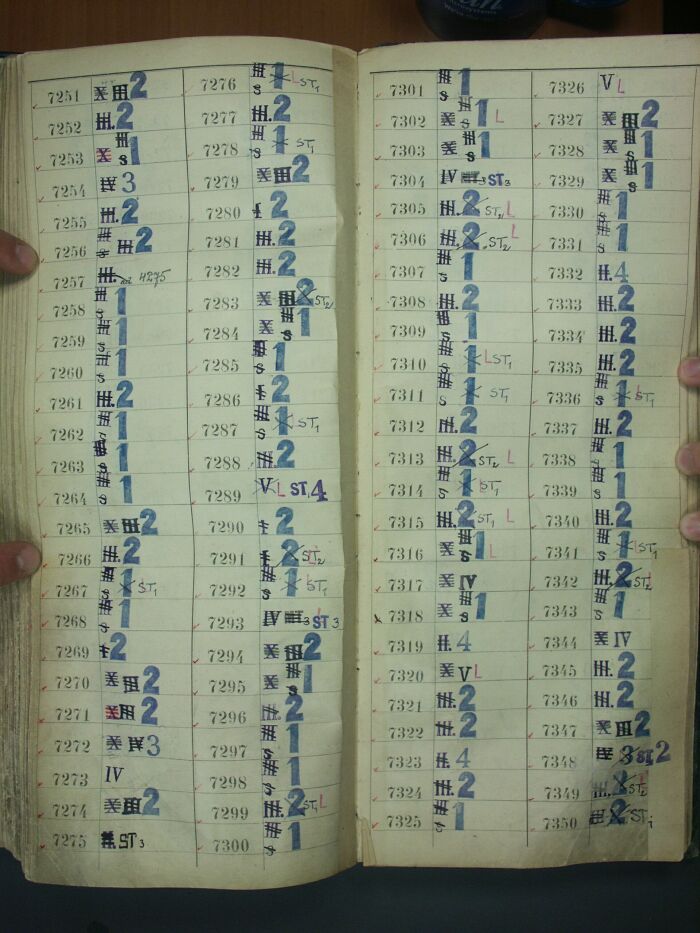 7251 X III 2
7252 III. 2
7253 X III S 1
7254 IV 3
7255 III. 2
7256 S III 2
7257 III. 4275
7258 III S 1
7259 III S 1
7260 III S 1
7261 III. 2
7262 III S 1
7263 III S 1
7264 III S 1
7265 X III 2
7266 III. 2
7267 III S 1 ST1
7268 III S 1
7269 I 2
7270 X III 2
7271 X III 2
7272 X IV 3
7273 IV
7274 X III 2
7275 ST3
7276 III S 1 L ST1
7277 III. 2
7278 III S 1 ST1
7279 X III 2
7280 I 2
7281 III. 2
7282 III. 2
7283 X III 2 ST2
7284 X III S 1
7285 III S 1
7286 I 2
7287 III S 1 ST1
7288 III. 2
7289 V L ST 4
7290 I 2
7291 I 2 ST2
7292 III S 1 ST1
7293 IV III 3 ST 3
7294 X III 2
7295 X III S 1
7296 III. 2
7297 III S 1
7298 III S 1
7299 III. 2 ST1 L
7300 III S 1
7301 III S 1
7302 X III S 1 L
7303 X III S 1
7304 IV 3 ST3
7305 III. 2 ST2 L
7306 III. 2 ST2 L
7307 III S 1
7308 III. 2
7309 III S 1
7310 III S 1 L ST1
7311 III S 1 ST1
7312 III. 2
7313 III. 2 ST2 L
7314 III S 1 ST1
7315 III. 2 ST1 L
7316 X III S 1 L
7317 X IV
7318 X III S 1
7319 II. 4
7320 X V L
7321 III. 2
7322 III. 2
7323 II. 4
7324 III. 2
7325 III S 1
7326 V L
7327 X III 2
7328 X III S 1
7329 X III S 1
7330 III S 1
7331 III S 1
7332 II. 4
7333 III. 2
7334 III. 2
7335 III. 2
7336 III S 1 ST1
7337 III. 2
7338 III S 1
7339 III S 1
7340 III. 2
7341 III S 1 ST1
7342 III. 2 ST2
7343 III S 1
7344 X IV
7345 III. 2
7346 III. 2
7347 X III 2
7348 IV 3 ST 2
7349 III. 2 ST2
7350 III 2 ST1